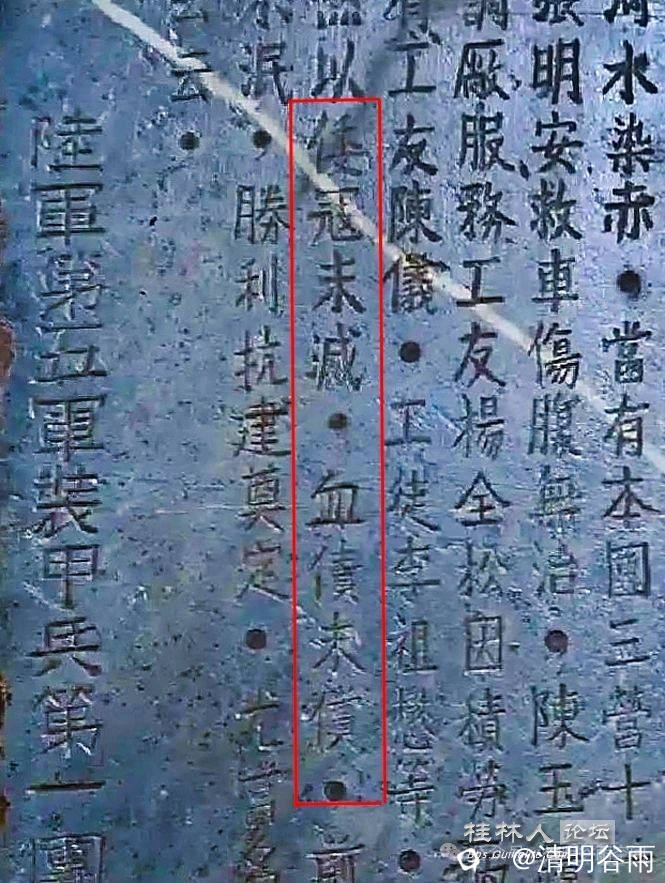 河水染赤●當有本團三營十
張明安救車傷腹無治●陳玉
廠服務工友楊全松因積勞
有工友陳儀●工徒李祖懋等●
以倭寇未滅●血債未償●前
不泯●勝利抗建奠定●
云●
陸軍第五軍裝甲兵第一團
桂林人论坛
@清明谷雨